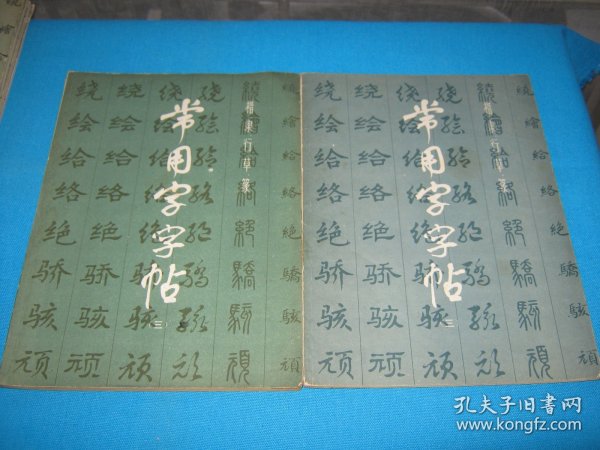 楷隶行草篆
常用字字帖
三
绕 绕 绕 绕
绘 绘 绘 绘
给 给 给 给
络 络 络 络
绝 绝 绝 绝
骄 骄 骄 骄
骇 骇 骇 骇
顽 顽 顽 顽
楷隶行草篆
常用字字帖
绕 绕 绕 绕
绘 绘 绘 绘
给 给 给 给
络 络 络 络
绝 绝 绝 绝
骄 骄 骄 骄
骇 骇 骇 骇
顽 顽 顽 顽
繞
繪
給
絡
絕
驕
駭
頑
孔夫子旧书网
www.kongfz.com